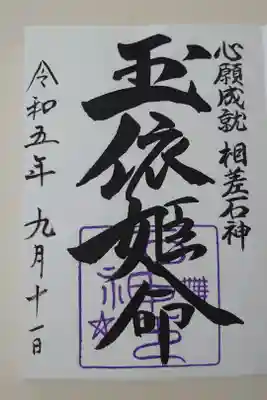 心願成就 相差石神
玉依姫命
令和五年 九月十一日